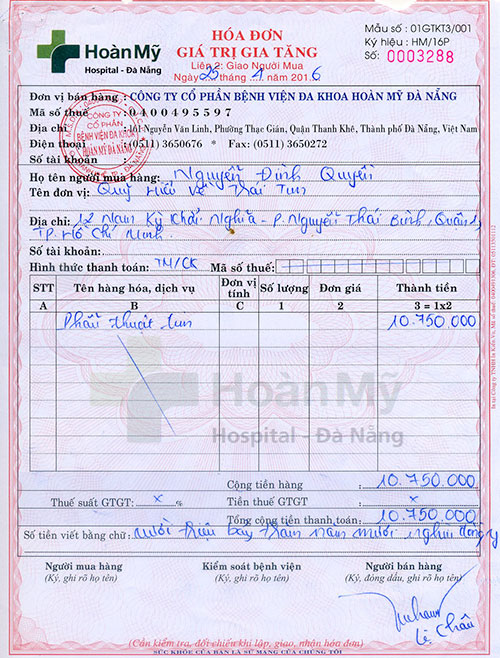 HÓA ĐƠN
GIÁ TRỊ GIA TĂNG
Liên 2: Giao Người Mua
Ngày 25 tháng 4 năm 2016
Mẫu số : 01GTKT3/001
Ký hiệu : HM/16P
Số: 0003288
Hoàn Mỹ
Hospital - Đà Nẵng
Đơn vị bán hàng : CÔNG TY CỔ PHẦN BỆNH VIỆN ĐA KHOA HOÀN MỸ ĐÀ NẴNG
Mã số thuế : 0400495597
Địa chỉ : 161 Nguyễn Văn Linh, Phường Thạc Gián, Quận Thanh Khê, Thành phố Đà Nẵng, Việt Nam
Điện thoại : (0511) 3650676 * Fax: (0511) 3650272
Số tài khoản :
CÔNG TY
CỔ PHẦN
BỆNH VIỆN ĐA KHOA
HOÀN MỸ ĐÀ NẴNG
Họ tên người mua hàng: Nguyễn Đình Quyền
Tên đơn vị: Quỹ Hiểu Về Trái Tim
Địa chỉ: 12 Nam Kỳ Khởi Nghĩa - P. Nguyễn Thái Bình, Quận 1,
TP. Hồ Chí Minh.
Số tài khoản:
Hình thức thanh toán: TM/CK Mã số thuế:
STT Tên hàng hóa, dịch vụ Đơn vị tính Số lượng Đơn giá Thành tiền
A B C 1 2 3 = 1x2
Phẫu thuật tim 10.750.000
Hoàn Mỹ
Hospital - Đà Nẵng
Cộng tiền hàng : 10.750.000
Thuế suất GTGT: x % Tiền thuế GTGT : x
Tổng cộng tiền thanh toán: 10.750.000
Số tiền viết bằng chữ: Mười triệu bảy trăm năm mươi nghìn đồng
Người mua hàng Kiểm soát bệnh viện Người bán hàng
(Ký, ghi rõ họ tên) (Ký, ghi rõ họ tên) (Ký, đóng dấu, ghi rõ họ tên)
Lê Châu
(Cần kiểm tra, đối chiếu khi lập, giao, nhận hóa đơn)
SỨC KHỎE CỦA BẠN LÀ SỨ MẠNG CỦA CHÚNG TÔI